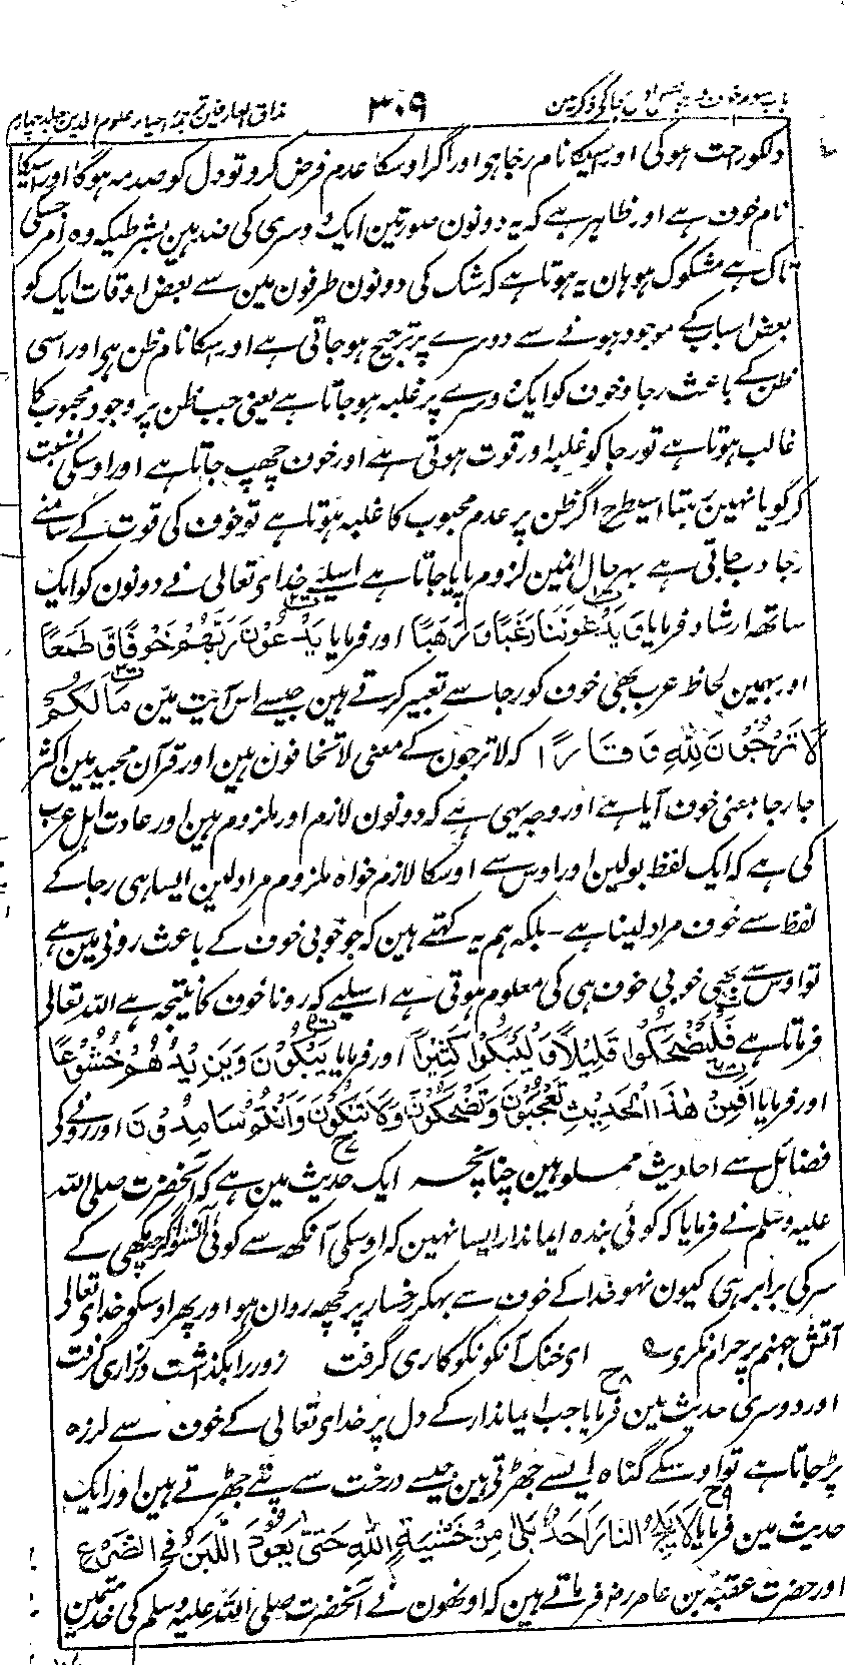 باب سوم خوف و رجا کی ذکر مین ۳۰۹ مذاق العارفین ترجمہ احیاء علوم الدین جلد چہارم
دلکو راحت ہوگی اور اسیکا نام رجا ہی اور اگر اوسکا عدم فرض کرو تو دل کو صدمہ ہوگا اور اسیکا
نام خوف ہے اور ظاہر ہے کہ یہ دونون صورتین ایک دوسری کی ضد ہین بشرطیکہ وہ امر جسکی
تاک ہے مشکوک ہو ہان یہ ہوتا ہے کہ شک کی دونون طرفون مین سے بعض اوقات ایک کو
بعض اسباب کے موجود ہونے سے دوسرے پر ترجیح ہو جاتی ہے اور اسکا نام ظن ہی اور اسی
ظن کے باعث رجا و خوف کو ایک دوسرے پر غلبہ ہو جاتا ہے یعنی جب ظن پر وجود محبوب کا
غالب ہوتا ہے تو رجا کو غلبہ اور قوت ہوتی ہے اور خوف چھپ جاتا ہے اور اوسکی نسبت
کر گویا نہین رہتا اسیطرح اگر ظن پر عدم محبوب کا غلبہ ہوتا ہے تو خوف کی قوت کے سامنے
رجا دب جاتی ہے بہر حال انمین لزوم پایا جاتا ہے اسلیے خدای تعالی نے دونون کو ایک
ساتھ ارشاد فرمایا وَ یَدْعُونَنَا رَغَبًا وَ رَهَبًا اور فرمایا یَدْعُوْنَ رَبَّهُمْ خَوْفًا وَّ طَمَعًا
اور بہمین لحاظ عرب بھی خوف کو رجا سے تعبیر کرتے ہین جیسے اس آیت مین مَا لَكُمْ
لَا تَرْجُوْنَ لِلّٰهِ وَقَارًا کہ لا ترجون کے معنی لا تخافون ہین اور قرآن مجید مین اکثر
جا رجا بمعنی خوف آیا ہے اور وجہ یہی ہے کہ دونون لازم اور ملزوم ہین اور عادت اہل عرب
کی ہے کہ ایک لفظ بولین اور اوس سے اوسکا لازم خواہ ملزوم مراد لین ایسا ہی رجا کے
لفظ سے خوف مراد لینا ہے - بلکہ ہم یہ کہتے ہین کہ جو خوبی خوف کے باعث رونی مین ہے
تو اوس سے بھی خوبی خوف ہی کی معلوم ہوتی ہے اسلیے کہ رونا خوف کا نتیجہ ہے اللہ تعالی
فرماتا ہے فَلْیَضْحَكُوا قَلِیْلًا وَّلْیَبْكُوا كَثِیْرًا اور فرمایا یَبْكُوْنَ وَیَزِیْدُهُمْ خُشُوْعًا
اور فرمایا اَفَمِنْ هٰذَا الْحَدِیْثِ تَعْجَبُوْنَ وَتَضْحَكُوْنَ وَلَا تَبْكُوْنَ وَاَنْتُمْ سَامِدُوْنَ اور رونے کے
فضائل سے احادیث مملو ہین چنانچہ ایک حدیث مین ہے کہ آنحضرت صلی اللہ
علیہ وسلم نے فرمایا کہ کوئی بندہ ایماندار ایسا نہین کہ اوسکی آنکھ سے کوئی آنسو اگرچہ مکھی کے
سر کی برابر ہی کیون نہو خدا کے خوف سے بہکر رخسار پر کچھہ روان ہو اور پھر اوسکو خدای تعالی
آتش جہنم پر حرام نکری ے ای خنک آنکو نکو کاری گرفت زور را بگذاشت و زاری گرفت
اور دوسری حدیث مین فرمایا جب ایماندار کے دل پر خدای تعالی کے خوف سے لرزہ
پڑ جاتا ہے تو اوسکے گناہ ایسے جھڑتی ہین جیسے درخت سے پتے جھڑتے ہین اور ایک
حدیث مین فرمایا لَا یَلِجُ النَّارَ اَحَدٌ بَكٰی مِنْ خَشْیَةِ اللّٰهِ حَتّٰی یَعُوْدَ اللَّبَنُ فِی الضَّرْعِ
اور حضرت عقبہ بن عامر رض فرماتے ہین کہ اونھون نے آنحضرت صلی اللہ علیہ وسلم کی خدمتمین